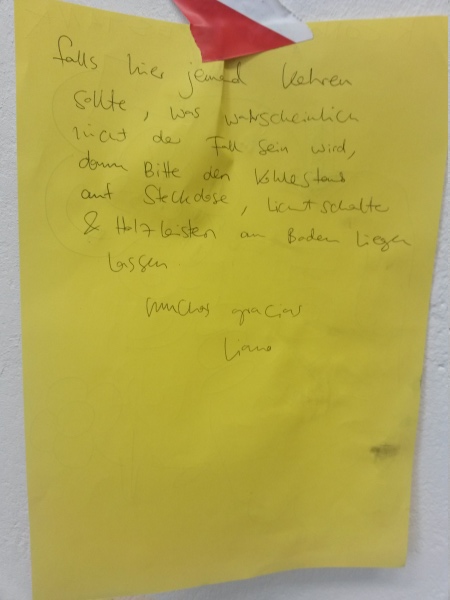 falls hier jemand kehren
sollte, was wahrscheinlich
nicht der Fall sein wird,
dann Bitte den Kohlestaub
auf Steckdose, Lichtschalter
& Holzleisten am Boden liegen
lassen
muchas gracias